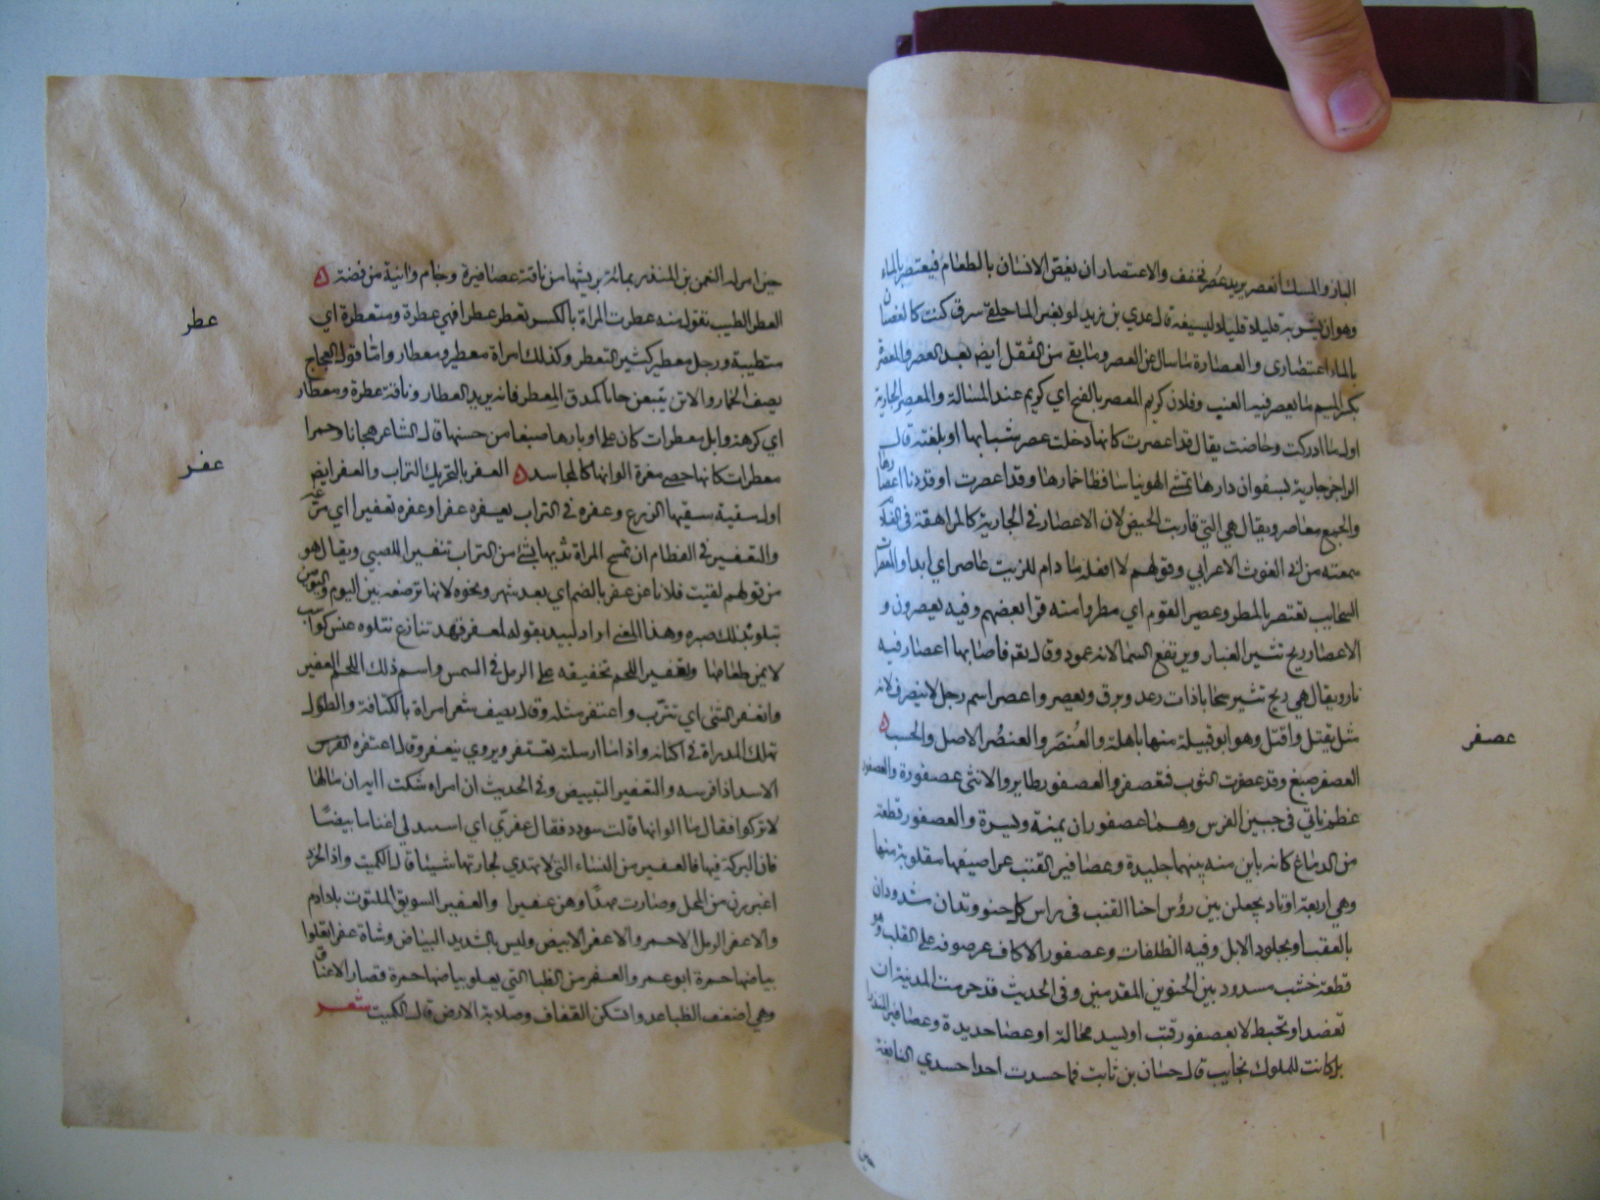 البان والمسك انعصر يريد عصر فخفف والاعتصار ان يغص الانسان بالطعام فيعتصر بالماء
وهو ان يشربه قليلا قليلا ليسيغه قال عدي بن زيد لو بغير الماء حلقي شرق كنت كالغصان
بالماء اعتصاري والعصارة ما سال عن العصر وما بقي من الثفل ايضا بعد العصر والمعصرة
بكسر الميم ما يعصر فيه العنب وفلان كريم المعصر بالفتح اي كريم عند المسالة والمعصر الجارية
اول ما ادركت وحاضت يقال قد اعصرت كانها دخلت عصر شبابها او بلغته قال
الراجز جارية بسفوان دارها تمشي الهوينا ساقطا خمارها وقد اعصرت او قد دنا اعصارها
والجمع معاصر ويقال هي التي قاربت الحيض لان الاعصار في الجارية كالمراهقة في الغلام
سمعته من ابي الغوث الاعرابي وقولهم لا افعله ما دام للزيت عاصر اي ابدا والمعصرات
السحايب تعتصر بالمطر وعصر القوم اي مطروا منه قرا بعضهم وفيه يعصرون و
الاعصار ريح تثير الغبار ويرتفع الى السما كانه عمود وقال تعم فاصابها اعصار فيه
نار ويقال هي ريح تثير سحابا ذات رعد وبرق ويعصر واعصر اسم رجل لا ينصرف لانه
مثل يقتل واقتل وهو ابو قبيلة منها باهلة والعنصر والعنصر الاصل والحسب ه
عصفر
العصفر صبغ وقد عصفرت الثوب فتعصفر والعصفور طاير والانثى عصفورة والعصفور
عظم ناتي في جبين الفرس وهما عصفوران يمنة ويسرة والعصفور قطعة
من الدماغ كانه باين منه بينهما جليدة وعصافير القتب عراصيفها مقلوبة منها
وهي اربعة اوتاد يجعلن بين رؤس احنا القتب في راس كل حنو وتدان مشدودان
بالعقب او بجلود الابل وفيه الظلفات وعصفور الاكاف عرصوفه على القلب وهو
قطعة خشب مسدود بين الحنوين المقدمين وفي الحديث قد حرمت المدينة ان
تعضد او تخبط لا بعصفور قتب او بسد محالة او عصا حديدة وعصافير المنذر
بل كانت للملوك نجايب قال حسان بن ثابت فما حسدت احدا حسدي النابغة
حين امر له النعمن بن المنذر بمائة بريشها من ناقة عصافيرة وجام وانية من فضة ه
عطر
العطر الطيب تقول منه عطرت المراة بالكسر تعطر عطرا فهي عطرة ومتعطرة اي
متطيبة ورجل معطير كثير التعطر وكذلك امراة معطير ومعطار واما قول العجاج
يصف الحمار والاتن يتبعن جابا كمدق المعطر فانه يريد العطار وناقة عطرة ومعطار
اي كريمة وابل معطرات كان على اوبارها صبغا من حسنها قال الشاعر هجانا وحمرا
عفر
معطرات كانها حصى مغرة الوانها كالمجاسد ه العفر بالتحريك التراب والعفر ايض
اول سقية سقيها الزرع وعفره في التراب يعفره عفرا وعفره تعفيرا اي مرغه
والتعفير في الفطام ان تمسح المراة ثديها بشي من التراب تنفيرا للصبي ويقال هو
من قولهم لقيت فلانا عن عفر بالضم اي بعد شهر ونحوه لانها ترضعه بين اليوم واليومين
تبلو بذلك صبره وهذا المعنى اراد لبيد بقوله لمعفر قهد تنازع شلوه غبس كواسب
لا يمن طعامها وتعفير اللحم تجفيفه على الرمل في الشمس واسم ذلك اللحم العفير
وانعفر الشي اي تترب واعتفر مثله وقال يصف شعر امراة بالكثافة والطول
تهلك المدراة في اكنانه واذا ما ارسلته يعتفر ويروي ينعفر وقال اعتفره الفرس
الاسد اذا فرسه والتعفير التبييض وفي الحديث ان امراه شكت اليه ان مالها
لا تزكوا فقال ما الوانها قالت سود فقال عفري اي استبدلي اغناما بيضا
فان البركة فيها فالعفير من النساء التي لا تهدي لجارتها شيئا قال الكميت واذ الخرد
اغبررن من المحل وصارت مهداهن عفيرا والعفير السويق الملتوت بلا ادام
والاعفر الرمل الاحمر والاعفر الابيض وليس بالشديد البياض وشاة عفرا يعلوا
بياضها حمرة ابو عمر والعفر من الظبا التي يعلو بياضها حمرة قصار الاعناق
وهي اضعف الظبا عدوا تسكن القفاف وصلابة الارض قال الكميت شعر